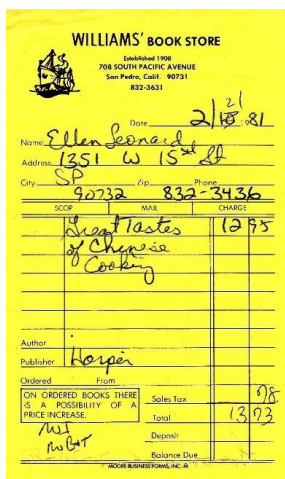 WILLIAMS' BOOK STORE
Established 1908
708 SOUTH PACIFIC AVENUE
San Pedro, Calif. 90731
832-3631
Date 2/18 21 81
Name Ellen Leonard
Address 1351 W 15th St
City SP Zip Phone
90732 832-3436
SCOP MAIL CHARGE
Great Tastes 12 95
of Chinese
Cooking
Author
Publisher Harper
Ordered From
ON ORDERED BOOKS THERE
IS A POSSIBILITY OF A
PRICE INCREASE.
Sales Tax 78
Total 13 73
Deposit
Balance Due
MOORE BUSINESS FORMS, INC. M